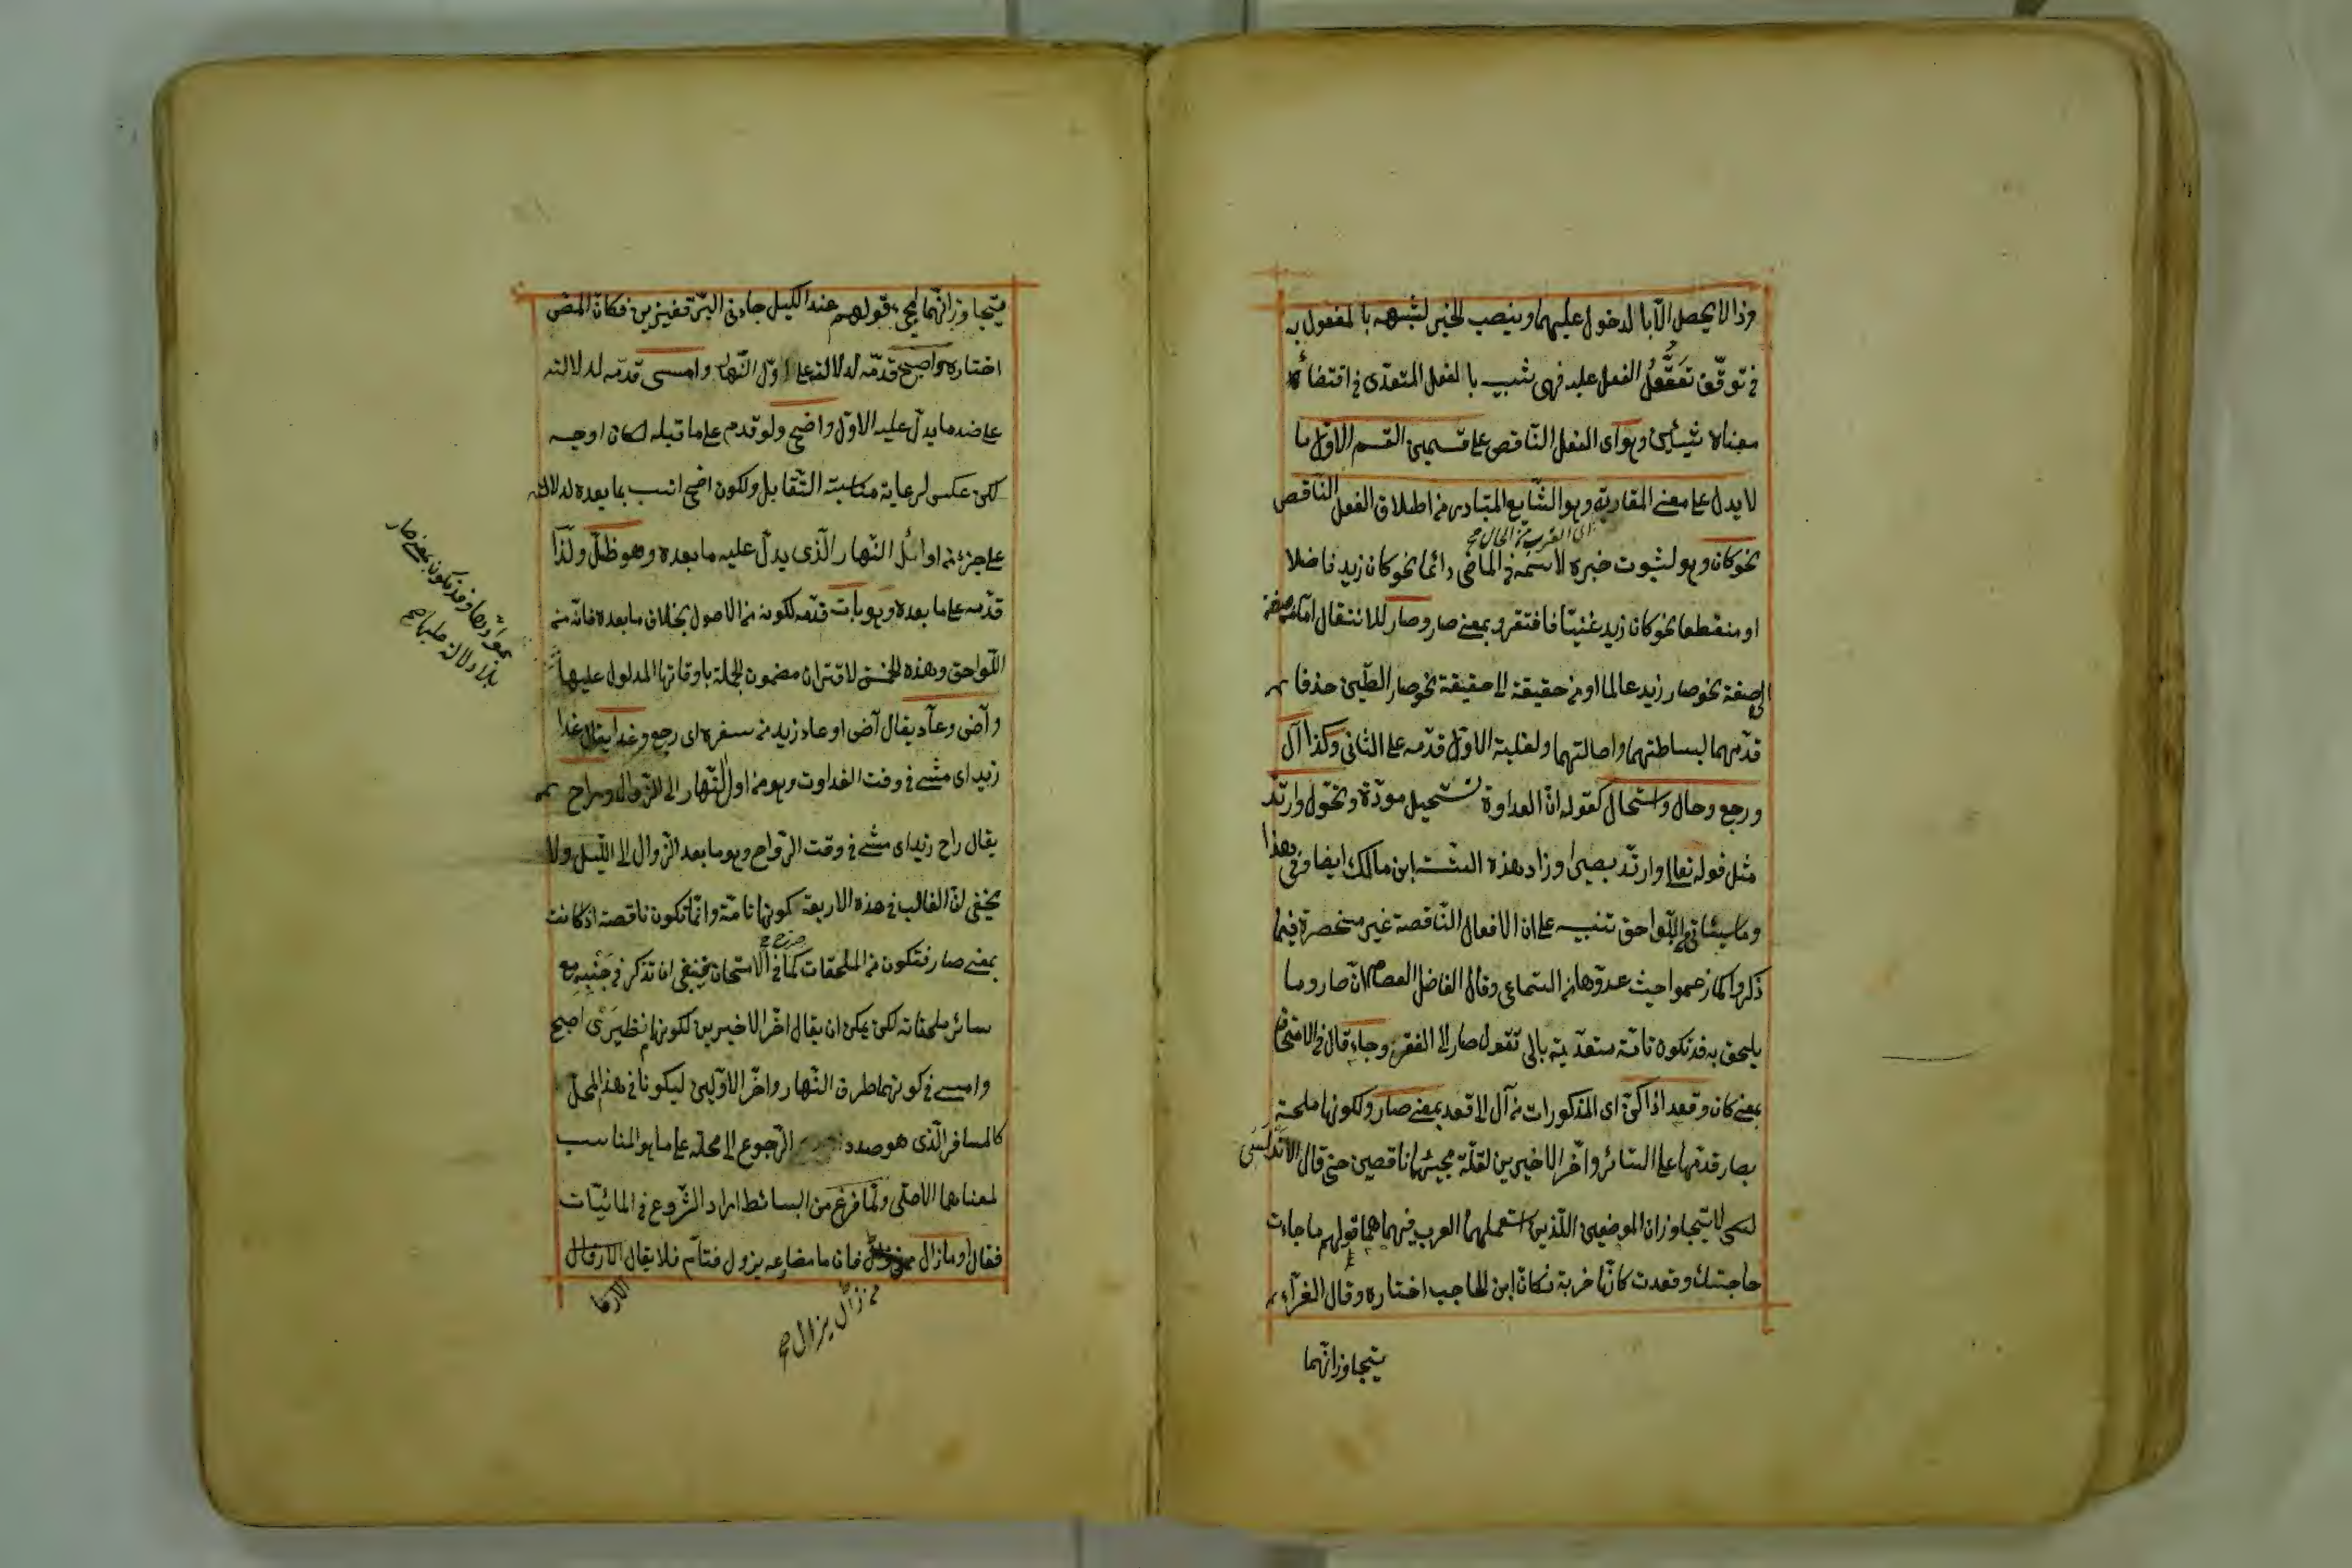 وذا لا يحصل الا بالدخول عليهما وينصب الخبر لشبهه بالمفعول به
في توقف تعقل الفعل عليه فهي شبيه بالفعل المتعدى في اقتضائه
معناه شيئين وهو اى الفعل الناقص على قسمين القسم الاول ما
لا يدل على معنى المقاربة وهو الشايع المتبادر من اطلاق الفعل الناقص
اى القرب من الحال
نحو كان وهو لثبوت خبره لاسمه في الماضى دائما نحو كان زيد فاضلا
او منقطعا نحو كان زيد غنيا فافتقر وبمعنى صار وصار للانتقال اما من صفة
الى صفة نحو صار زيد عالما او من حقيقة الى حقيقة نحو صار الطين خذفا
قدمهما لبساطتهما واصالتهما ولغلبة الاول قدمه على الثانى وكذا آل
ورجع وحال واستحال كقوله ان العداوة تستحيل مودة وتحول وارتد
مثل قوله تعالى وارتد بصيرا وزاد هذه الستة ابن مالك ايضا وفى هذا
وما سيئاتى في اللواحق تنبيه على ان الافعال الناقصة غير منحصرة فيما
ذكروا كما زعموا حيث عدوها من السماعى وقال الفاضل العصام ان صار وما
يلحق به قد تكون تامة متعدية بالى تقول صار الى الفقر وجاء قال في الامتحان
بمعنى كان وقعد اذا كن اى المذكورات من آل الى قعد بمعنى صار ولكونها ملحقة
بصار قدمها على السائر واخر الاخيرين لقلة مجيئهما ناقصين حتى قال الاندلسى
لا يتجاوزان الموضعين اللذين استعملهما العرب فيهما هما قولهم ما جاءت
حاجتك وقعدت كانها حربة فكان ابن الحاجب اختاره وقال الفراء
يتجاوزانهما
يتجاوزانهما لمجئ قولهم عند الكيل جاءنى البر قفيزين فكان المص
اختاره واصبح قدمه لدلالته على اول النهار وامسى قدمه لدلالته
على ضد ما يدل عليه الاول واضحى ولو قدم على ما قبله لكان اوجه
لكن عكس لرعاية مناسبة التقابل ولكون اضحى انسب بما بعده لدلالته
على جزء من اوائل النهار الذى يدل عليه ما بعده وهو ظل ولذا
قدمه على ما بعده وهو بات قدمه لكونه من الاصول بخلاف ما بعده فانه من
اللواحق وهذه الخمس لاقتران مضمون الجملة باوقاتها المدلول عليها
وآض وعاد يقال آض او عاد زيد من سفره اى رجع وغدا يقال غدا
زيد اى مشى في وقت الغداوة وهو من اول النهار الى الزوال وراح
يقال راح زيد اى مشى في وقت الرواح وهو ما بعد الزوال الى الليل ولا
يخفى ان الغالب في هذه الاربعة كونها تامة وانما تكون ناقصة اذا كانت
بمعنى صار فتكون من الملحقات كما في الامتحان فينبغى ان تذكر في جنبه مع
سائر ملحقاته لكن يمكن ان يقال اخر الاخيرين لكونهما نظيرى اصبح
وامسى في كونهما طرفى النهار واخر الاولين ليكونا في هذا المحل
كالمسافر الذى هو صدد الرجوع الى محله على ما هو المناسب
لمعناهما الاصلى ولما فرغ من البسائط اراد الشروع في المائيات
فقال وما زال فان ما مضارعه يزول فتام فلا يقال الا زال
من زال يزال صح